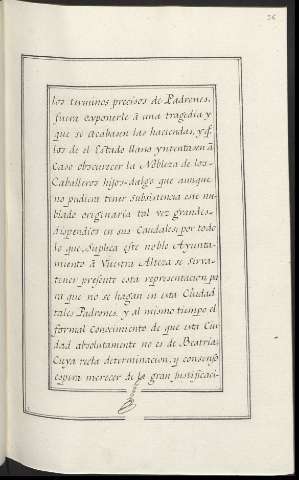 26
los terminos precisos de Padrones,
fuera exponerle à una tragedia y
que se acabasen las haciendas, y q̃
los de el Estado llano yntentasen à
caso obscurecer la Nobleza de los-
Caballeros hijos-dalgo que aunque
no pudiera tener subsistencia este nu-
blado originaria tal vez grandes-
dispendios en sus Caudales; por todo
lo que, Suplica este noble Ayunta-
miento à Vuestra Alteza se serva-
tener presente esta representacion pa
ra que no se hagan en esta Ciudad
tales Padrones, y al mismo tiempo el
formal Conocimiento de que esta Ciu
dad absolutamente no es de Beatria;
Cuya recta determinacion, y consenso
espera merecer de la gran justificaci-